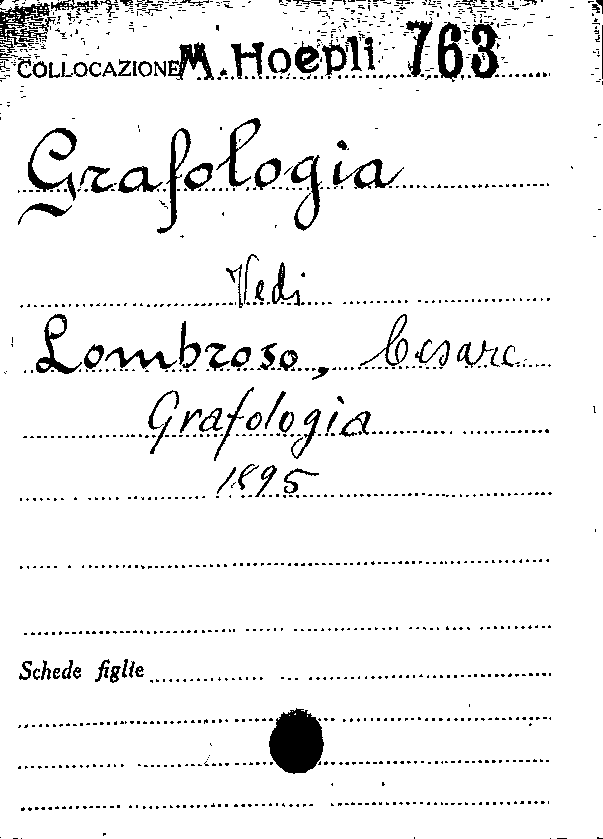 COLLOCAZIONE M. Hoepli 763
Grafologia
Vedi
Lombroso, Cesare
Grafologia
1895
Schede figlie